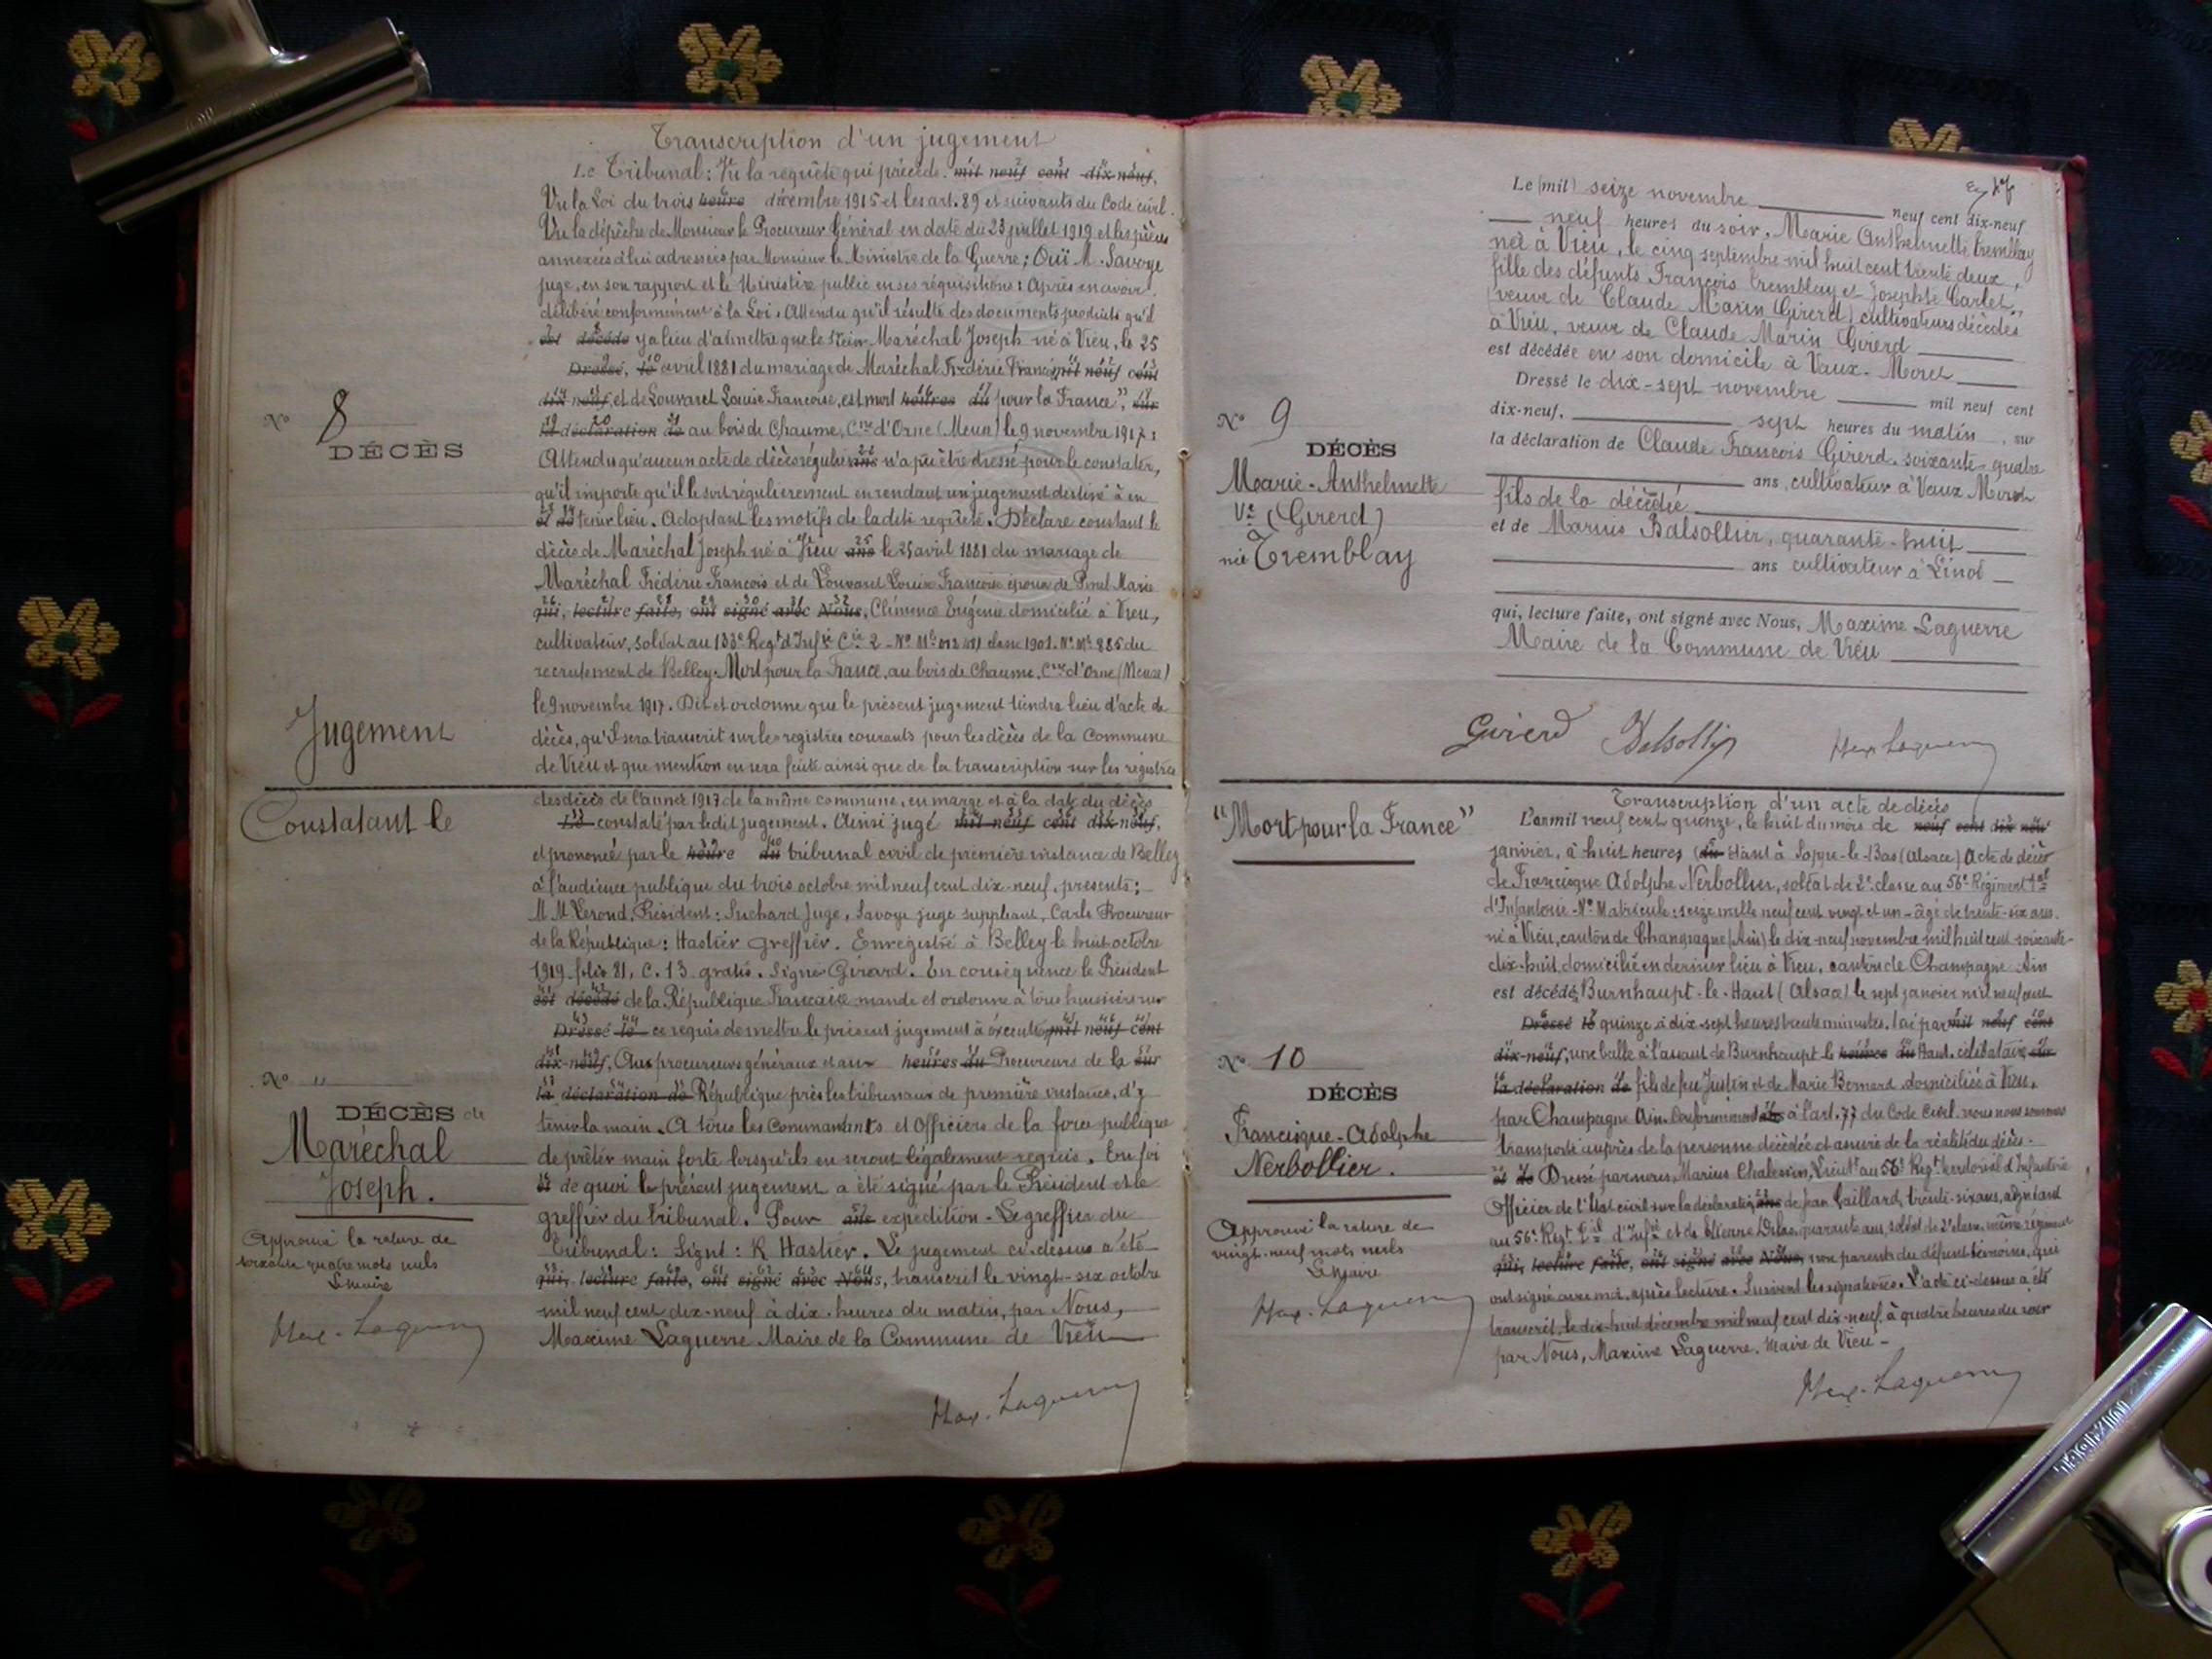 Transcription d'un jugement
Le Tribunal: Vu la requête qui précède. mil neuf cent dix-neuf,
Vu la Loi du trois heure décembre 1915 et les art. 89 et suivants du Code civil.
Vu la dépêche de Monsieur le Procureur Général en date du 23 juillet 1919 et les pièces
annexées à lui adressées par Monsieur le Ministre de la Guerre; Ouï M. Savoye
juge, en son rapport et le Ministère public en ses réquisitions: Après en avoir
délibéré conformément à la Loi, Attendu qu'il résulte des documents produits qu'il
est décédé y a lieu d'admettre que le Sieur Maréchal Joseph né à Vieu, le 25
Dressé, le avril 1881 du mariage de Maréchal Frédéric François mil neuf cent
dix neuf, et de Louvaret Louise Francoise, est mort heures du pour la France", sur
N° 8
la déclaration de au bois de Chaume, Cne d'Orne (Meuse) le 9 novembre 1917:
DÉCÈS
Attendu qu'aucun acte de décès régulier ans n'a pu être dressé pour le constater,
qu'il importe qu'il le soit régulièrement en rendant un jugement destiné à en
et de tenir lieu. Adoptant les motifs de la dite requête. Déclare constant le
décès de Maréchal Joseph né à Vieu ans le 25 avril 1881 du mariage de
Maréchal Frédéric François et de Louvaret Louise Francoise époux de Pinet Marie
qui, lecture faite, ont signé avec Nous, Clémence Eugénie domicilié à Vieu,
cultivateur, soldat au 133e Regt d'Infie Cie 2 - classe 1901. N° Mle 885 du
recrutement de Belley. Mort pour la France, au bois de Chaume, Cne d'Orne (Meuse)
le 9 novembre 1917. Dit et ordonne que le présent jugement tiendra lieu d'acte de
Jugement
décès, qu'il sera transcrit sur les registres courants pour les décès de la Commune
de Vieu et que mention en sera faite ainsi que de la transcription sur les registres
des décès de l'année 1917 de la même commune, en marge et à la date du décès
Constatant le
Le constaté par ledit jugement. Ainsi jugé mil neuf cent dix neuf,
et prononcé par le heure du tribunal civil de première instance de Belley
à l'audience publique du trois octobre mil neuf cent dix-neuf. présents:
M M Lerond, Président: Suchard Juge, Savoye juge suppléant, Carle Procureur
de la République: Hastier greffier. Enregistré à Belley le huit octobre
1919 folio 81, C. 13 gratis. Signé Girard. En conséquence le Président
est décédé de la République Francaise mande et ordonne à tous huissiers sur
Dressé le ce requis de mettre le présent jugement à exécution mil neuf cent
dix-neuf, Aux procureurs généraux et aux heures du Procureurs de la sur
N° "
la déclaration de République près les tribunaux de première instance, d'y
DÉCÈS de
tenir la main. A tous les Commandants et Officiers de la force publique
Maréchal
de prêter main forte lorsqu'ils en seront légalement requis. En foi
Joseph.
et de quoi le présent jugement a été signé par le Président et le
greffier du tribunal. Pour ans expédition - Le greffier du
Approuvé la rature de
Tribunal: Signé: R Hastier. Le jugement ci-dessus a été
soixante quatre mots nuls
qui, lecture faite, ont signé avec Nous, transcrit le vingt-six octobre
Le Maire
mil neuf cent dix-neuf à dix heures du matin, par Nous,
Max. Laguerre
Maxime Laguerre Maire de la Commune de Vieu
Max. Laguerre
Le (mil) seize novembre neuf cent dix-neuf
neuf heures du soir, Marie Anthelmette Tremblay
née à Vieu, le cinq septembre mil huit cent trente deux,
fille des défunts François Tremblay et Josephte Carlet,
(veuve de Claude Marin Girerd) cultivateurs décédés
à Vieu, veuve de Claude Marin Girerd
est décédée en son domicile à Vaux-Moret
Dressé le dix-sept novembre mil neuf cent
N° 9
dix-neuf, sept heures du matin, sur
DÉCÈS
la déclaration de Claude François Girerd, soixante-quatre
Marie-Anthelmette
ans, cultivateur à Vaux Moret
Ve (Girerd)
fils de la décédée
née Tremblay
et de Marius Balsollier, quarante-huit
ans cultivateur à Linod
qui, lecture faite, ont signé avec Nous, Maxime Laguerre
Maire de la Commune de Vieu
Girerd Balsollier Max Laguerre
"Mort pour la France"
Transcription d'un acte de décès
L'an mil neuf cent quinze, le huit du mois de neuf cent dix neuf
janvier, à huit heures du étant à Soppe-le-Bas (Alsace) Acte de décès
de Francisque Adolphe Nerbollier, soldat de 2e classe au 56e Régiment Tal
d'Infanterie - N° Matricule: seize mille neuf cent vingt et un - âgé de trente-six ans.
né à Vieu, canton de Champagne (Ain) le dix-neuf novembre mil huit cent soixante-
dix-huit, domicilié en dernier lieu à Vieu, canton de Champagne Ain
est décédé, Burnhaupt-le-Haut (Alsace) le sept janvier mil neuf cent
Dressé le quinze à dix-sept heures trente minutes, tué par mil neuf cent
N° 10
dix-neuf, une balle à l'assaut de Burnhaupt le heures du Haut. célibataire, sur
DÉCÈS
la déclaration de fils de feu Justin et de Marie Bernard domiciliée à Vieu,
Francisque-Adolphe
par Champagne Ain. Conformément ans à l'art. 77 du Code Civil. nous nous sommes
Nerbollier.
transporté auprès de la personne décédée et assuré de la réalité du décès.
et de Dressé par nous, Marius Chatessin, Lieutt au 56e Regt territorial d'Infanterie
Officier de l'Etat civil sur la déclaration ans de Jean Gaillard, trente-six ans, adjudant
Approuvé la rature de
au 56e Regt Tal d'Infie et de Etienne Dilas, quarante ans, soldat de 2e classe, même régiment
vingt-neuf mots nuls
qui, lecture faite, ont signé avec Nous, non parents du défunt témoins, qui
Le Maire
ont signé avec moi, après lecture. Suivent les signatures. L'acte ci-dessus a été
Max. Laguerre
transcrit, le dix-huit décembre mil neuf cent dix-neuf, à quatre heures du soir
par Nous, Maxime Laguerre. Maire de Vieu -
Max. Laguerre